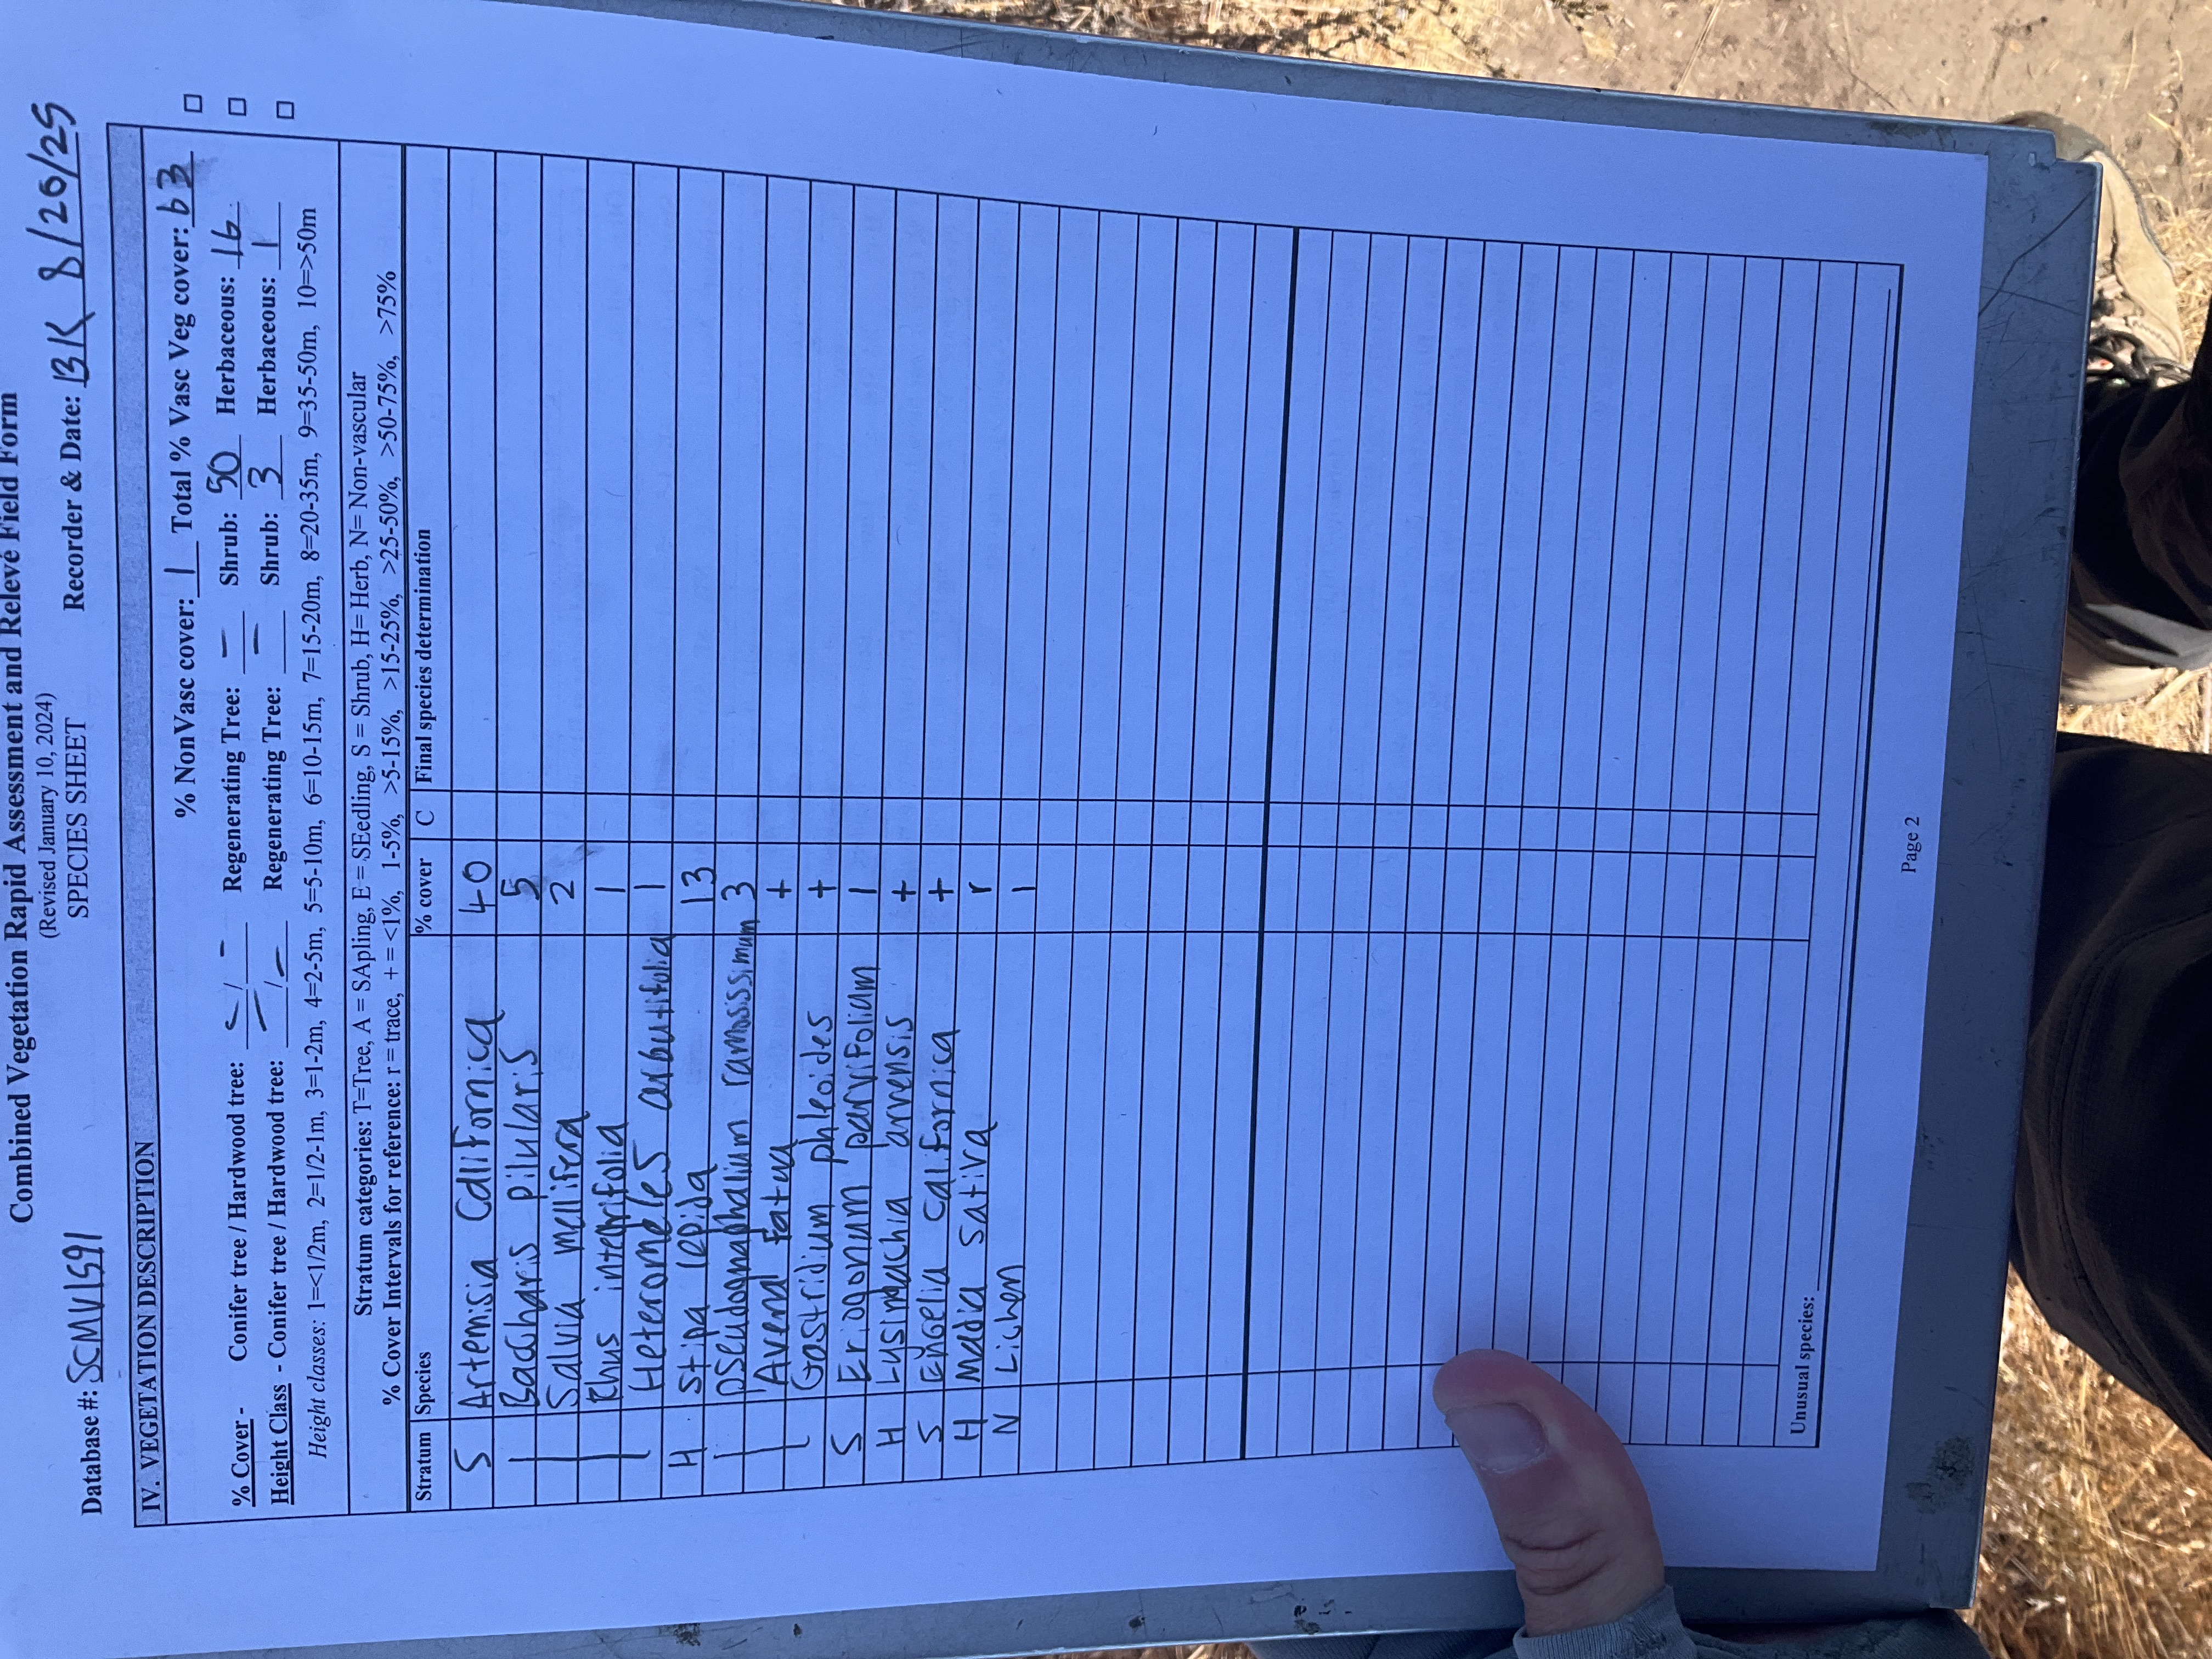 Combined Vegetation Rapid Assessment and Relevé Field Form
(Revised January 10, 2024)
SPECIES SHEET
Database #: SCMV1591 Recorder & Date: BK 8/26/25
IV. VEGETATION DESCRIPTION
% NonVasc cover: 1 Total % Vasc Veg cover: 63 □
% Cover - Conifer tree / Hardwood tree: - / - Regenerating Tree: - Shrub: 50 Herbaceous: 16 □
Height Class - Conifer tree / Hardwood tree: - / - Regenerating Tree: - Shrub: 3 Herbaceous: 1 □
Height classes: 1=<1/2m, 2=1/2-1m, 3=1-2m, 4=2-5m, 5=5-10m, 6=10-15m, 7=15-20m, 8=20-35m, 9=35-50m, 10=>50m
Stratum categories: T=Tree, A = SApling, E = SEedling, S = Shrub, H= Herb, N= Non-vascular
% Cover Intervals for reference: r = trace, + = <1%, 1-5%, >5-15%, >15-25%, >25-50%, >50-75%, >75%
Stratum Species % cover C Final species determination
S Artemisia Californica 40
| Baccharis pilularis 5
| Salvia mellifera 2
| Rhus integrifolia 1
| Heteromeles arbutifolia 1
H Stipa lepida 13
| Pseudognaphalium ramosissimum 3
| Avena Fatua +
| Gastridium phleoides +
S Eriogonum parvifolium 1
H Lysimachia arvensis +
S Encelia Californica +
H Madia sativa r
N Lichen 1
Unusual species:
Page 2